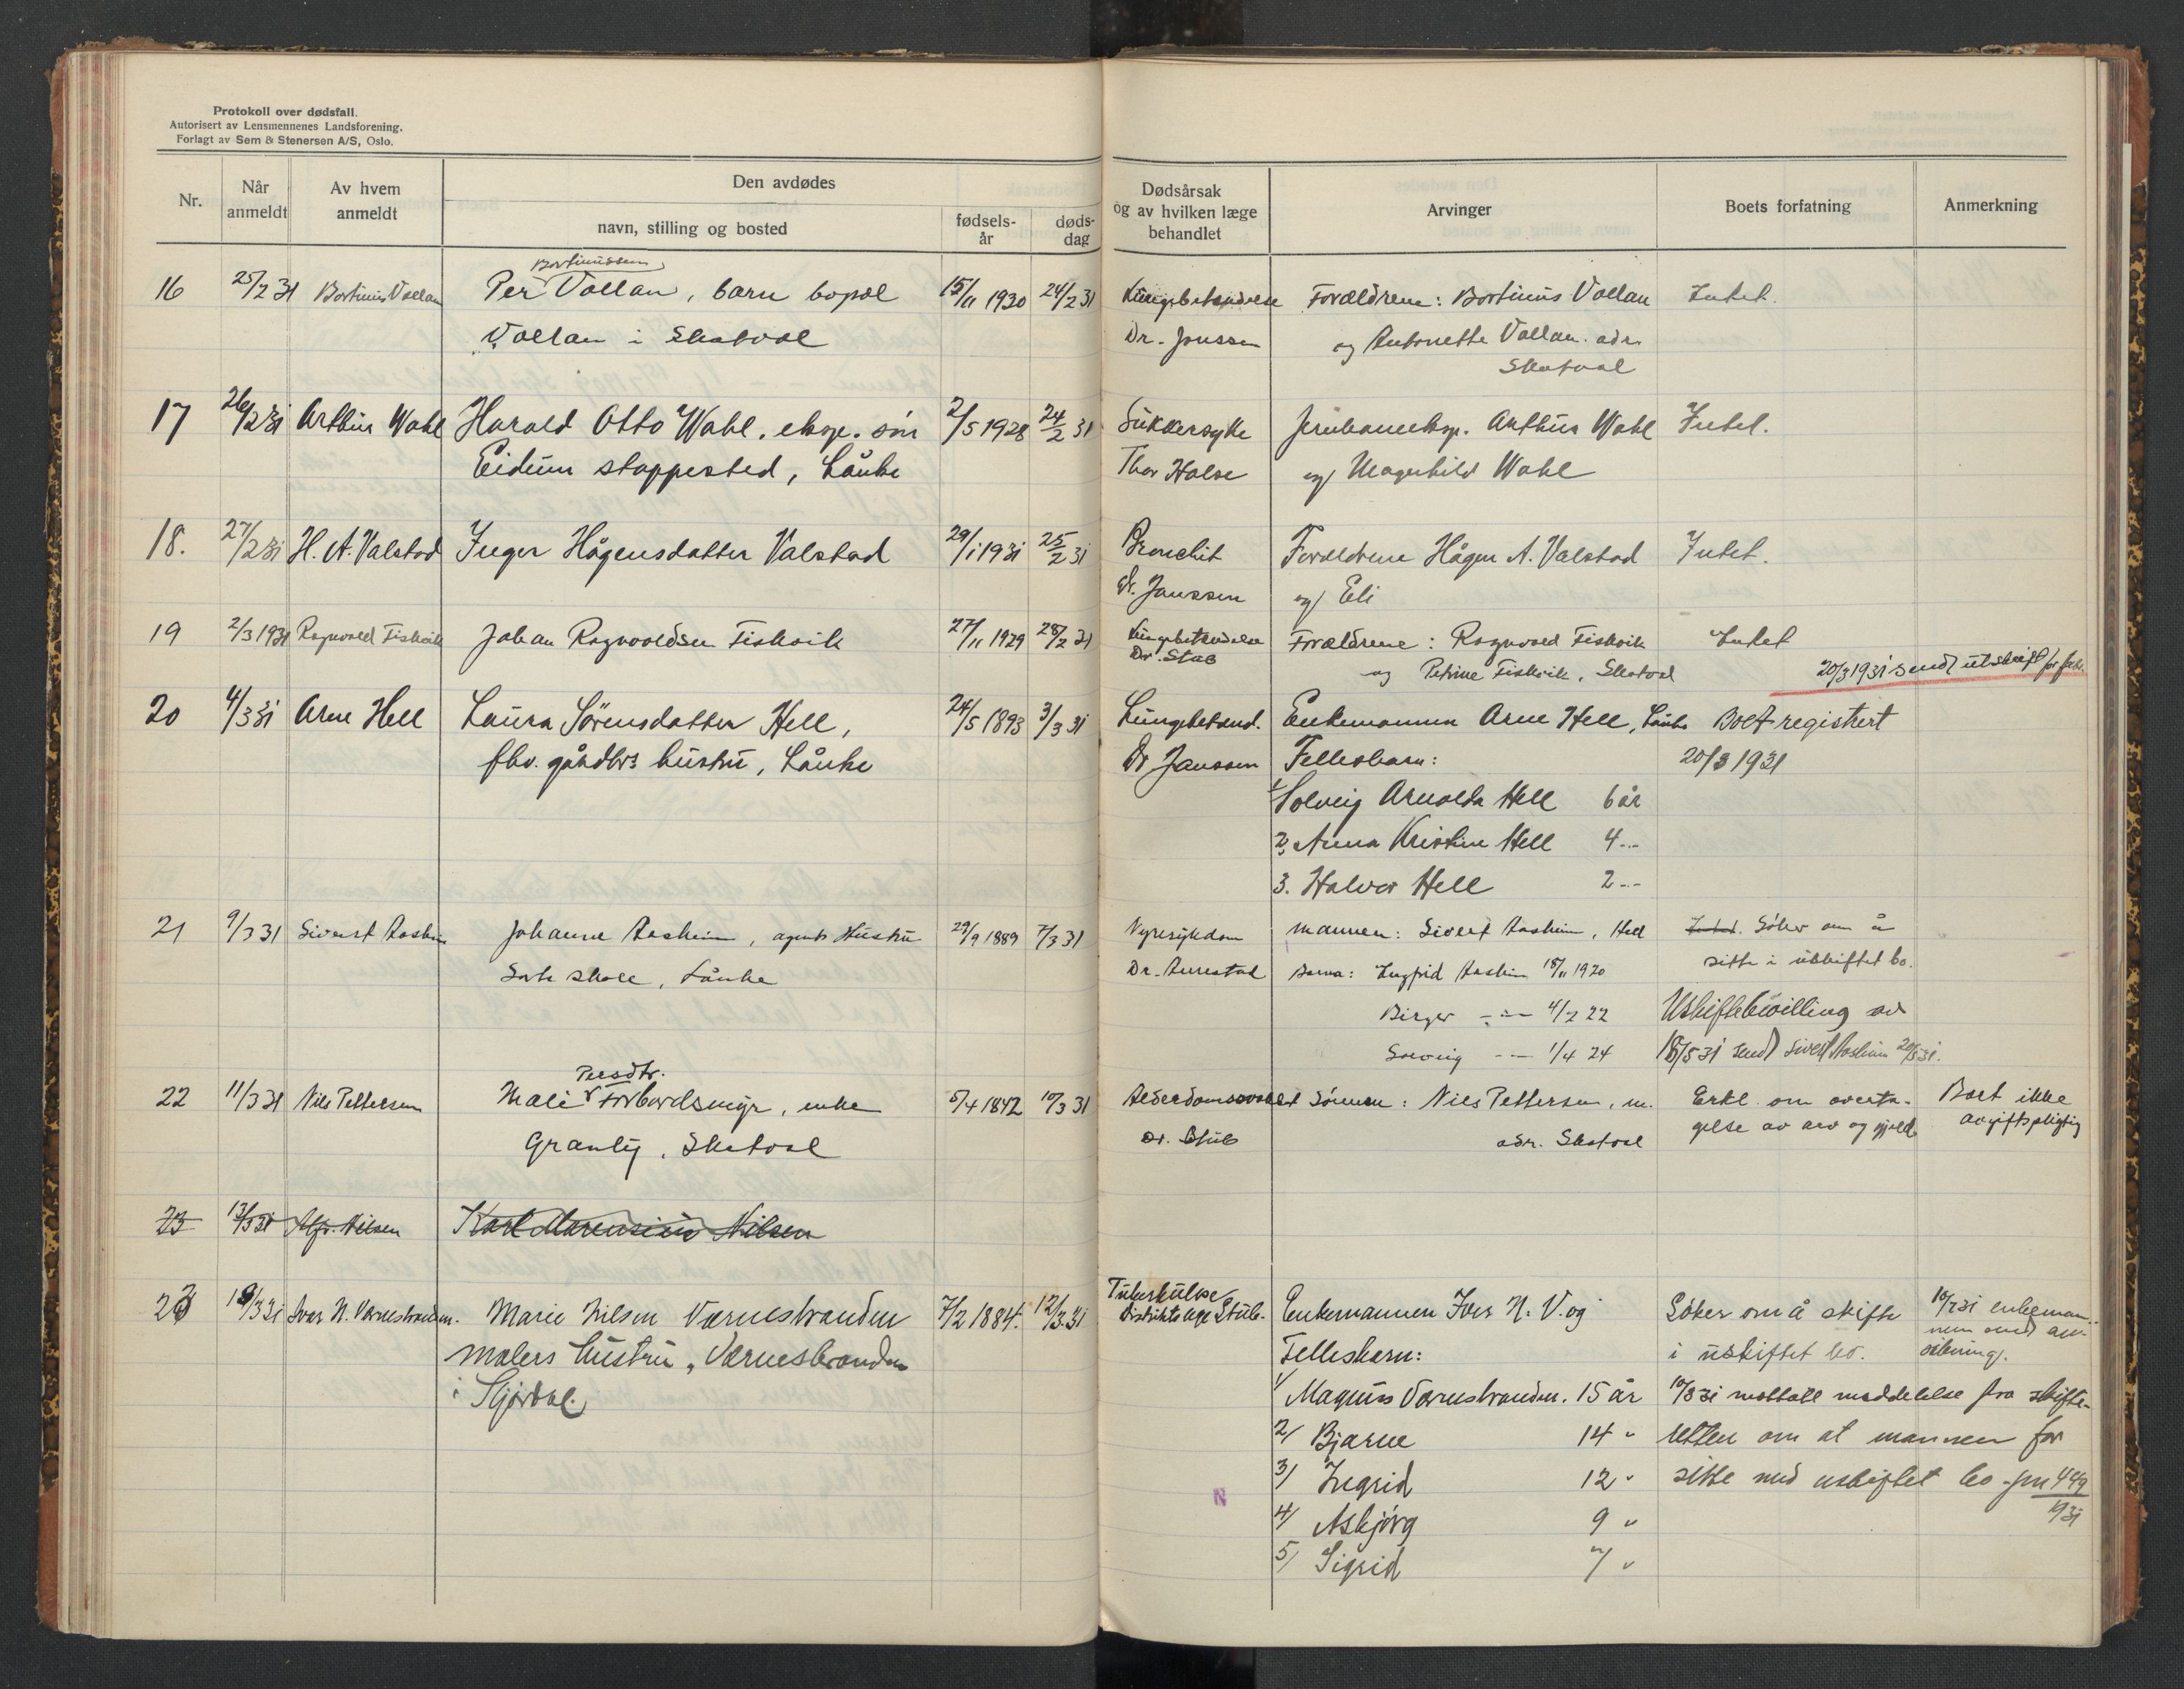 Protokoll over dødsfall.
Autorisert av Lensmennenes Landsforening.
Forlagt av Sem & Stenersen A/S, Oslo.
Nr.
Når anmeldt
Av hvem anmeldt
Den avdødes
navn, stilling og bosted
fødsels-år
døds-dag
Dødsårsak og av hvilken læge behandlet
Arvinger
Boets forfatning
Anmerkning
Bortinussen
16 25/2 31 Bortinus Vollan Per Vollan, barn bopæl 15/11 1930 24/2 31 Lungebetendelse Forældrene: Bortinus Vollan Intet.
Vollan i Skatval Dr. Janssen og Antonette Vollan. adr.
Skatval
17 26/2 31 Arthur Wahl Harald Otto Wahl, eksp. søn 2/5 1928 24/2 31 Sukkersyke Jernbaneeksp. Arthur Wahl Intet.
Eidum stoppested, Lånke Thor Halse og Magnhild Wahl
18. 27/2 31 H. A. Valstad Inger Hågensdatter Valstad 29/1 1931 25/2 31 Bronchit Foreldrene Hågen A. Valstad Intet.
dr. Janssen og Eli
19 2/3 1931 Ragnvald Fiskvik Johan Ragnvaldsen Fiskvik 27/11 1929 28/2 31 Lungebetendelse Forældrene: Ragnvald Fiskvik Intet
Dr. Stub og Petrine Fiskvik, Skatval 20/3 1931 sendt utskrift for
20 4/3 31 Arne Hell Laura Sørensdatter Hell, 24/5 1893 3/3 31 Lungebetend. Enkemannen Arne Hell, Lånke Boet registrert
fhv. gårdbrs hustru, Lånke Dr Janssen Fellesbarn: 20/3 1931
1/ Solveig Arnolda Hell 6 år
2, Anna Kristine Hell 4 --
3. Halvor Hell 2 --
21 9/3 31 Sivert Aasheim Johanne Aasheim, agents Hustru 29/9 1889 7/3 31 Nyresykdom mannen: Sivert Aasheim, Hell Intet. Søker om å
skole, Lånke Dr. Barna: Ingfrid Aasheim 18/11 1920 sitte i uskiftet bo.
Birger -"- 4/2 22 Uskiftebevilling av
Solveig -"- 1/4 24 18/5 31 sendt Sivert Aasheim 20/5 31.
Persdtr.
22 11/3 31 Nils Pettersen Mali Forbordsmyr, enke 5/4 1842 10/3 31 Alderdomssvakhet Sønnen: Nils Pettersen, m. Erkl. om overta- Boet ikke
Granly, Skatval Dr. Stub adr. Skatval gelse av arv og gjeld avgiftspligtig
23 13/3 31 Alfr. Nilsen Karl Marensius Nilsen
23 19/3 31 Ivar N. Værnesbranden. Marie Nilsen Værnesbranden 7/2 1884. 12/3 31 Tuberkulose Enkemannen Iver N. V. og Søker om å skifte 10/7 31 enkeman-
malers hustru, Værnesbranden Distriktslæge Stub. Fellesbarn: i uskiftet bo. nen sendt an-
i Stjørdal. visning.
1/ Magnus Værnesbranden. 15 år 10/8 31 mottatt meddelelse fra skifte-
2/ Bjarne 14 " retten om at mannen får
3/ Ingrid 12 " sitte med uskiftet bo - jnr 449/1931
4/ Asbjørg 9 "
N
5/ Sigrid 7 "